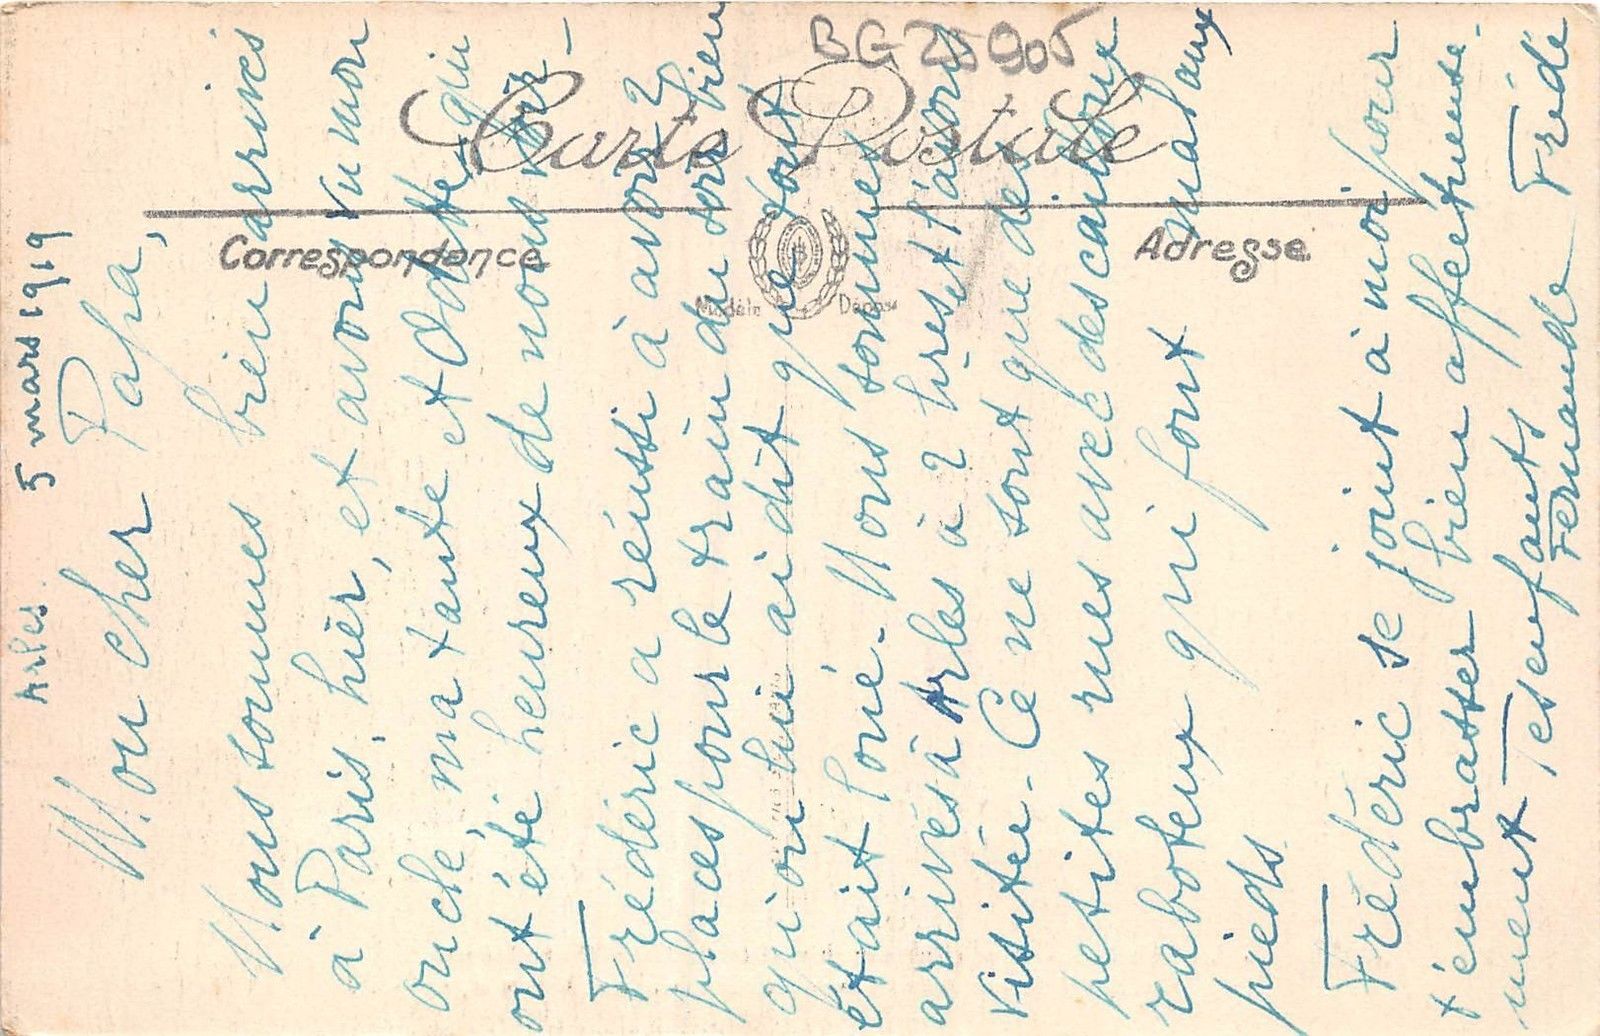 BG 25905
Carte Postale
Correspondance
Adresse
Modèle Déposé
Arles. 5 mars 1919
Mon cher Papa,
Nous sommes bien arrivés
à Paris, hier, et avons vu mon
oncle, ma tante et Odette, qui
ont été heureux de nous voir -
Frédéric a réussi à avoir 2
places pour le train du soir bien
qu'on lui ai dit que tout
était loué - Nous sommes
arrivés à Arles à 2 hres et l'avons
visitée - Ce ne sont que des
petites rues avec des cailloux
raboteux qui font mal aux
pieds
Frédéric se joint à moi pour
t'embrasser bien affectueuse-
ment Tes enfants
Fernande Frédé